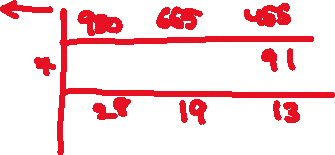 980 665 455
7 91
28 19 13